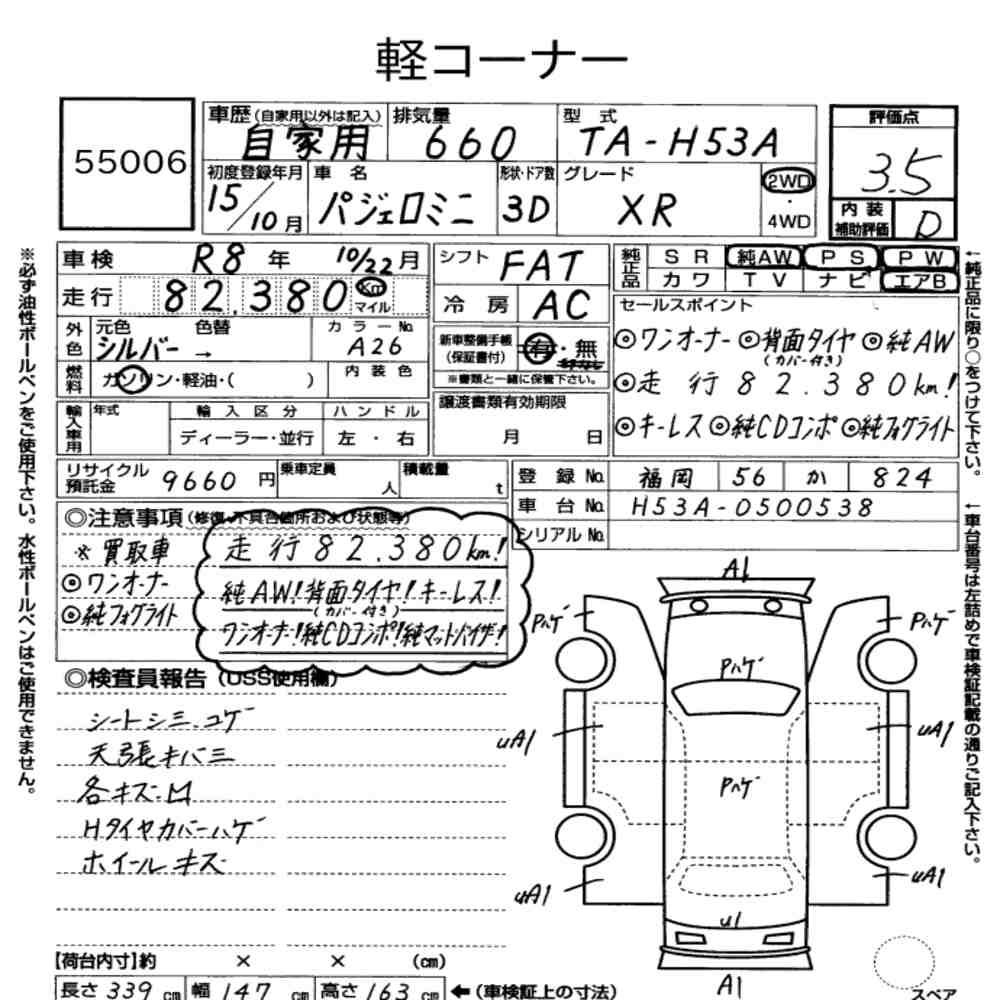 軽コーナー
55006
車歴(自家用以外は記入) 自家用
排気量 660
型式 TA-H53A
評価点 3.5
初度登録年月 15/10月
車名 パジェロミニ
形状・ドア数 3D
グレード XR
2WD・4WD
内装補助評価 D
車検 R8年 10/22月
シフト FAT
純正品 SR 純AW PS PW
カワ TV ナビ エアB
走行 82.380 Km マイル
冷房 AC
セールスポイント
外色 元色 シルバー 色替 → カラーNo. A26
新車整備手帳(保証書付) 有・無
※書類と一緒に保管下さい。
◎ワンオーナー ◎背面タイヤ(カバー付き) ◎純AW
燃料 ガソリン・軽油・( ) 内装色
◎走行82.380km!
輸入車用 年式 輸入区分 ハンドル
ディーラー・並行 左・右
譲渡書類有効期限
月 日
◎キーレス ◎純CDコンポ ◎純フォグライト
リサイクル預託金 9660円
乗車定員 人
積載量 t
登録No. 福岡 56 か 824
車台No. H53A-0500538
シリアルNo.
◎注意事項(修復・不具合箇所および状態等)
※買取車
◎ワンオーナー
◎純フォグライト
走行82.380km!
純AW!背面タイヤ!キーレス!
(カバー付き)
ワンオーナー!純CDコンポ!純マットバイザー!
◎検査員報告(USS使用欄)
シートシミ.コゲ
天張キバミ
各キズ凹
Hタイヤカバーハゲ
ホイールキズ
A1
Pハゲ
Pハゲ
Pハゲ
uA1
uA1
Pハゲ
uA1
uA1
u1
A1
スペア
【荷台内寸】約 × × (cm)
長さ 339cm 幅 147cm 高さ 163cm ←(車検証上の寸法)
※必ず油性ボールペンをご使用下さい。水性ボールペンはご使用できません。
←純正品に限り○をつけて下さい。
←車台番号は左詰めで車検証記載の通りご記入下さい。